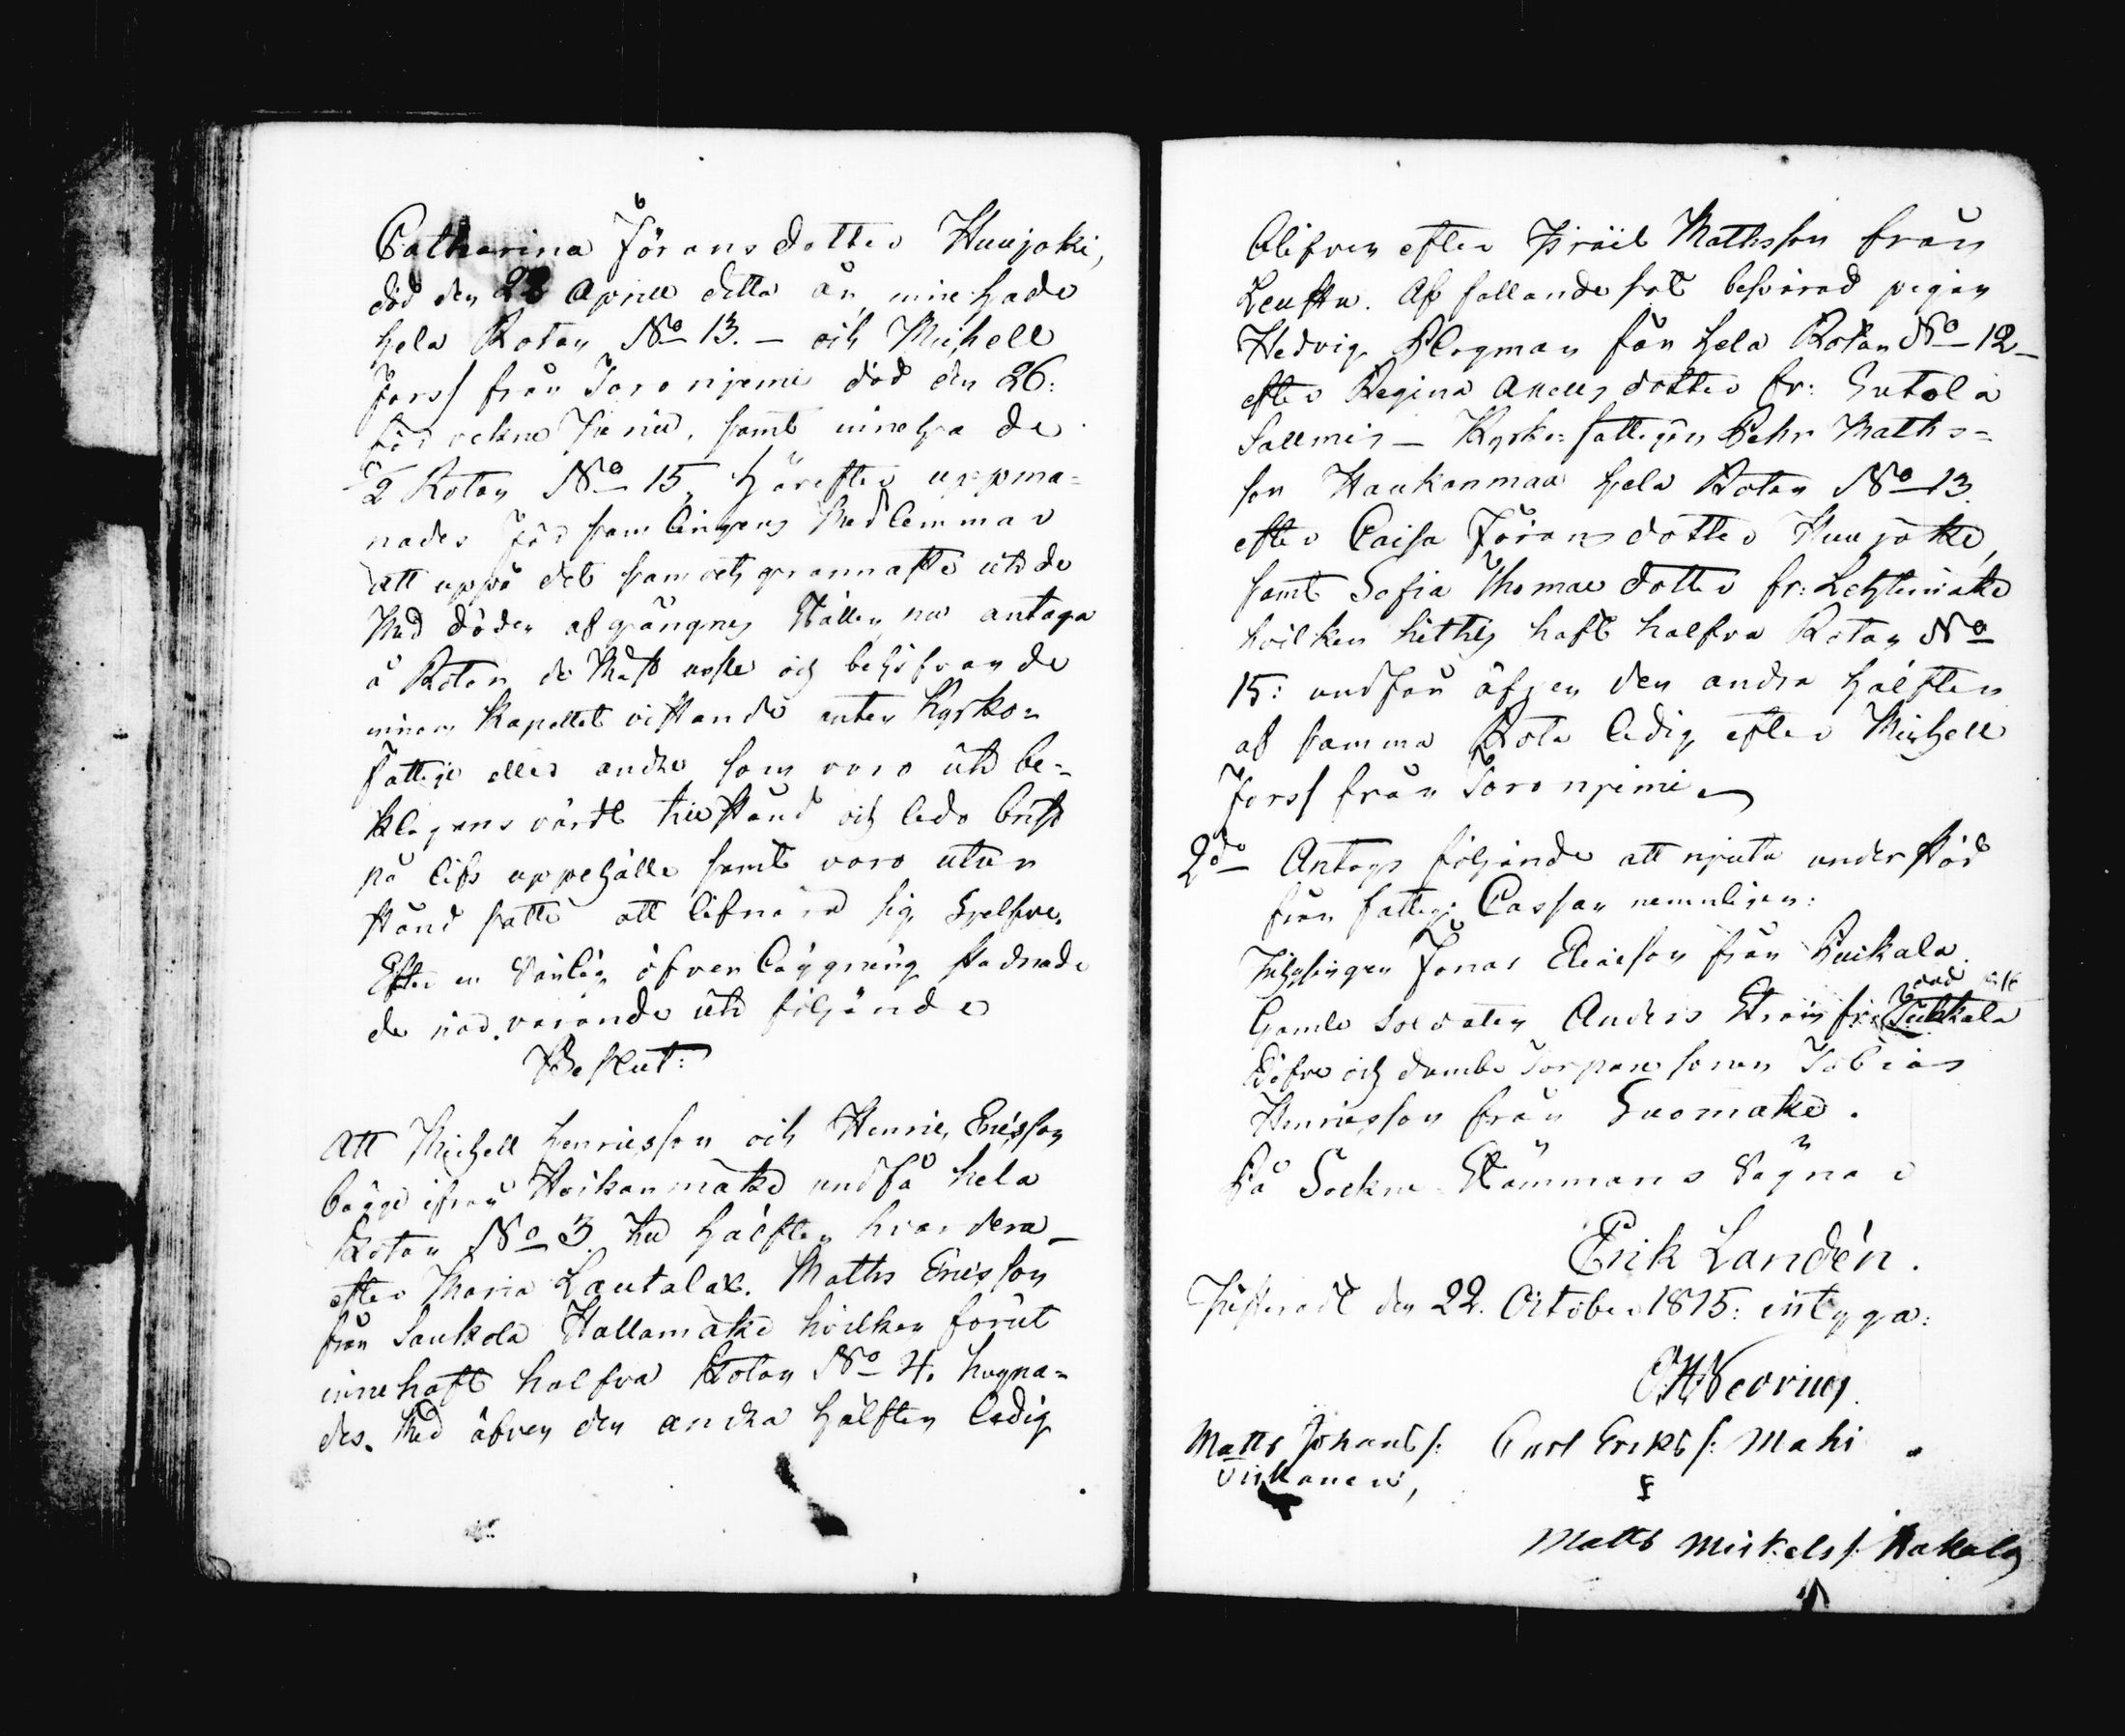 Catharina Jöransdotter Kuujoki,
död den 28 Aprill detta år, innehade
hela Rotan No 13. – och Michell
Forss från Toroniemi död den 26:
sidvekne Junii, samt innehade
1/2 Rotan No 15, Härefter uppma-
nades Församlingens Medlemmar
att uppå det samvetsgrannaste utide
Med döden afgångnes Ställen nu antaga
å Rotan de Mäst usla och behöfvande
inom Kapellet vistande anten Kyrko-
fattige eller andre som voro uti be-
klagansvärdt tillstånd och ledo brist
på lifs uppehälle samt voro utur
stånd satte att lifnära sig Sjelfve.
Efter en Vänlig öfverläggning stadnade
de närvarande uti följande
Beslut:
Att Michell Henricsson och Henric Ericsson
bägge ifrån Koikanmäki undfå hela
Rotan No 3 till hälften hvardera –
efter Maria Lautala. Maths Ericsson
från Saukola Kallamäki hvilken förut
innehaft halfva Rotan No 4. hugna-
des. Med äfven den andra hälften ledig
blifven efter Isräil Mathsson från
Leustu. Af fallandesot besvärad pigan
Hedvig Blogman får hela Rotan No 12 –
efter Regina Anellsdotter fr: Sutola
Sallmis – Kyrko fattigen Pehr Maths-
son Haukanmaa hela Rotan No 13
efter Caisa Jöransdotter Kuujoki,
samt Sofia Thomae dotter fr: Lehtimäki
hvilken hittils haft halfva Rotan No
15: undfår äfven den andra hälften
af samma Rota ledig efter Michell
Forss från Toroniemi.
2do Antogs följande att njuta understöd
från fattig: Cassan nemnligen:
Inhysingen Jonas Ericsson från Puikala.
död
Gamle Soldaten Anders Ström fr: Pukkala
Döfve och dumbe Torparesonen Tobias
Henricsson från Suomäki.
På Sockne-Stämmans Vägnar
Erik Landén.
Justeradt den 22. October 1815: intyga:
Matts Johans s: Carl Eriks s: Mahi
Viskanen,
Matts Mickels s: Kakala